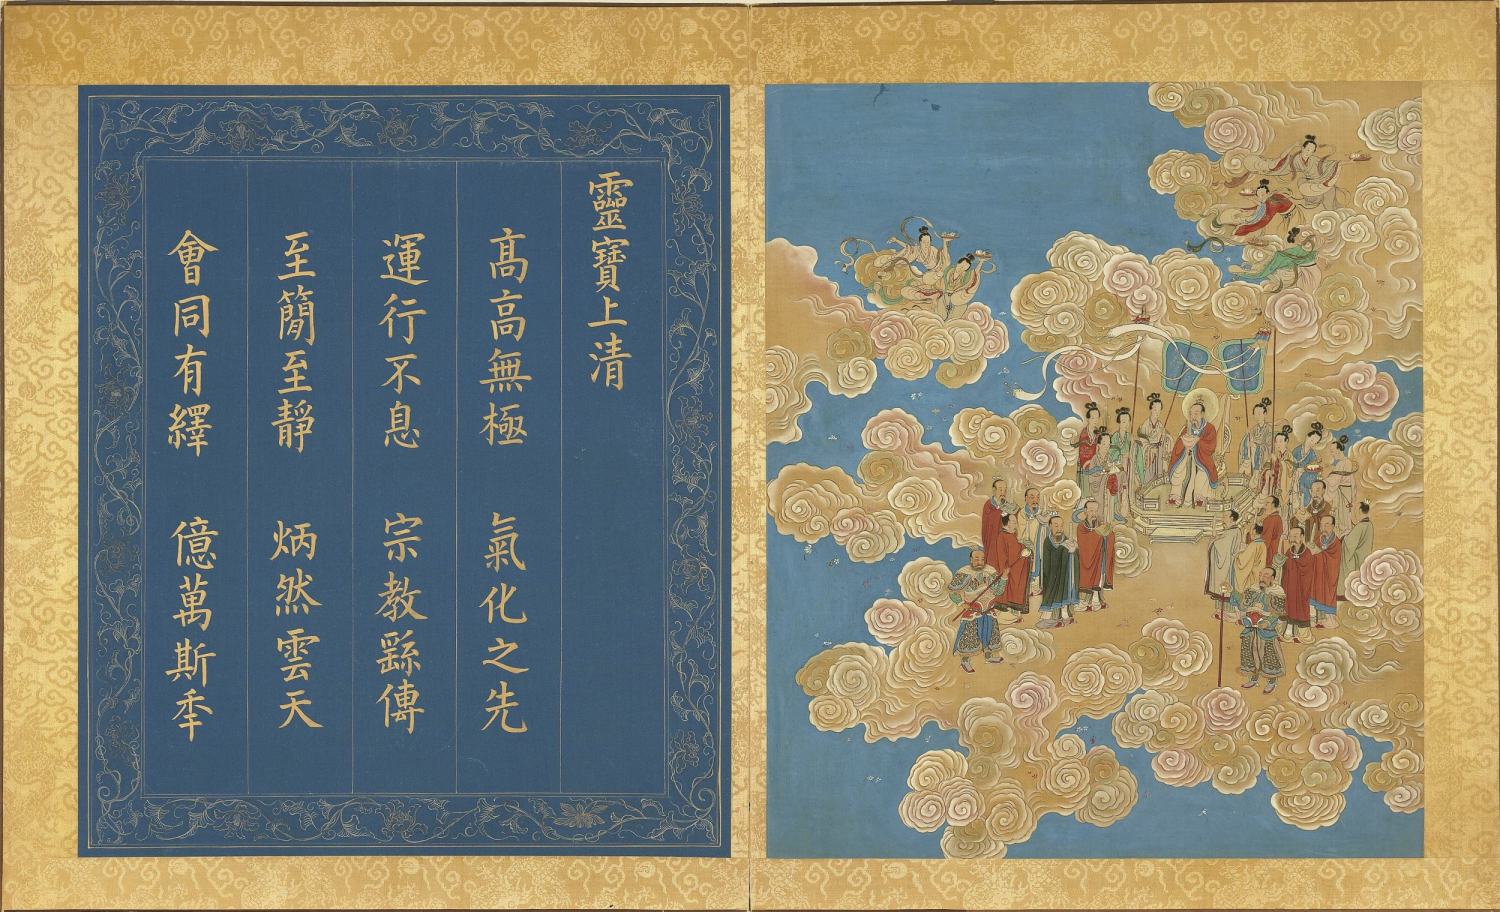 靈寶上清
髙高無極　氣化之先
運行不息　宗教繇傳
至簡至靜　炳然雲天
會同有繹　億萬斯秊